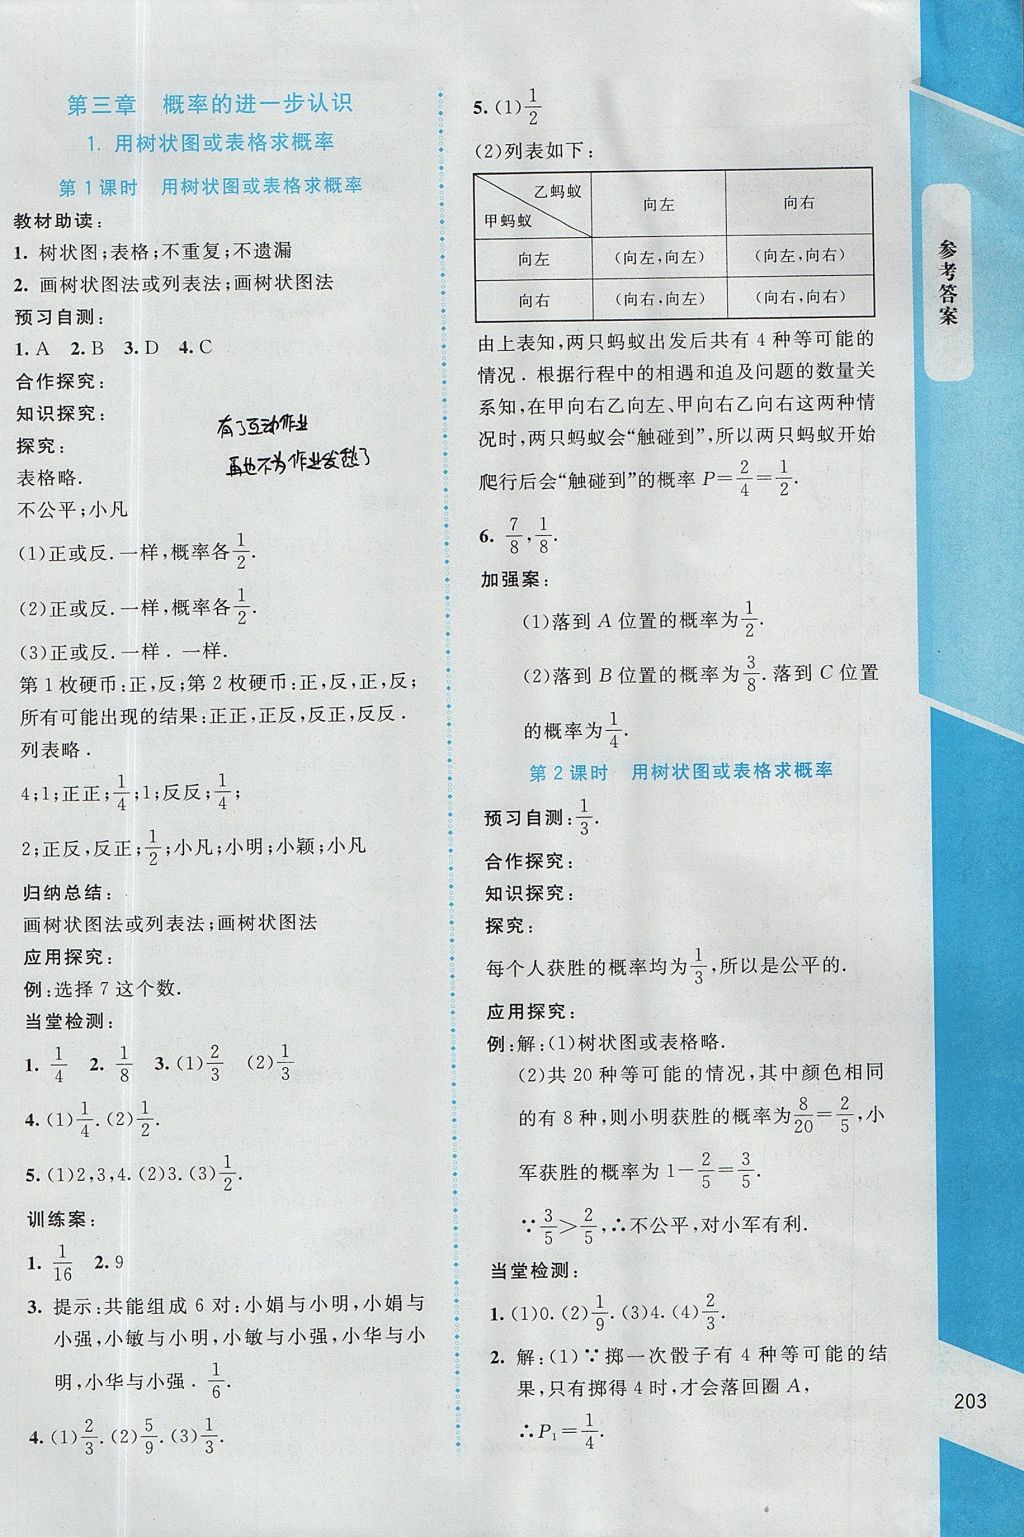 第三章 概率的进一步认识
1. 用树状图或表格求概率
第1课时 用树状图或表格求概率
教材助读:
1. 树状图;表格;不重复;不遗漏
2. 画树状图法或列表法;画树状图法
预习自测:
1. A 2. B 3. D 4. C
合作探究:
知识探究:
探究:
表格略.
不公平;小凡
(1)正或反.一样,概率各1/2.
(2)正或反.一样,概率各1/2.
(3)正或反.一样.一样.
第1枚硬币:正,反;第2枚硬币:正,反,正,反;
所有可能出现的结果:正正,正反,反正,反反.
列表略.
4;1;正正;1/4;1;反反;1/4;
2;正反,反正;1/2;小凡;小明;小颖;小凡
归纳总结:
画树状图法或列表法;画树状图法
应用探究:
例:选择7这个数.
当堂检测:
1. 1/4 2. 1/8 3. (1)2/3 (2)1/3
4. (1)1/4. (2)1/2.
5. (1)2,3,4. (2)3. (3)1/2.
训练案:
1. 1/16 2. 9
3. 提示:共能组成6对:小娟与小明,小娟与
小强,小敏与小明,小敏与小强,小华与小
明,小华与小强. 1/6.
4. (1)2/3. (2)5/9. (3)1/3.
有了互动作业
再也不为作业发愁了
5. (1)1/2
(2)列表如下:
乙蚂蚁
甲蚂蚁 向左 向右
向左 (向左,向左) (向左,向右)
向右 (向右,向左) (向右,向右)
由上表知,两只蚂蚁出发后共有4种等可能的
情况.根据行程中的相遇和追及问题的数量关
系知,在甲向右乙向左、甲向右乙向右这两种情
况时,两只蚂蚁会“触碰到”,所以两只蚂蚁开始
爬行后会“触碰到”的概率P=2/4=1/2.
6. 7/8,1/8.
加强案:
(1)落到A位置的概率为1/2.
(2)落到B位置的概率为3/8.落到C位置
的概率为1/4.
第2课时 用树状图或表格求概率
预习自测:1/3.
合作探究:
知识探究:
探究:
每个人获胜的概率均为1/3,所以是公平的.
应用探究:
例:解:(1)树状图或表格略.
(2)共20种等可能的情况,其中颜色相同
的有8种,则小明获胜的概率为8/20=2/5,小
军获胜的概率为1-2/5=3/5.
∵3/5>2/5,∴不公平,对小军有利.
当堂检测:
1. (1)0. (2)1/9. (3)4. (4)2/3.
2. 解:(1)∵掷一次骰子有4种等可能的结
果,只有掷得4时,才会落回圈A,
∴P₁=1/4.
参考答案
203